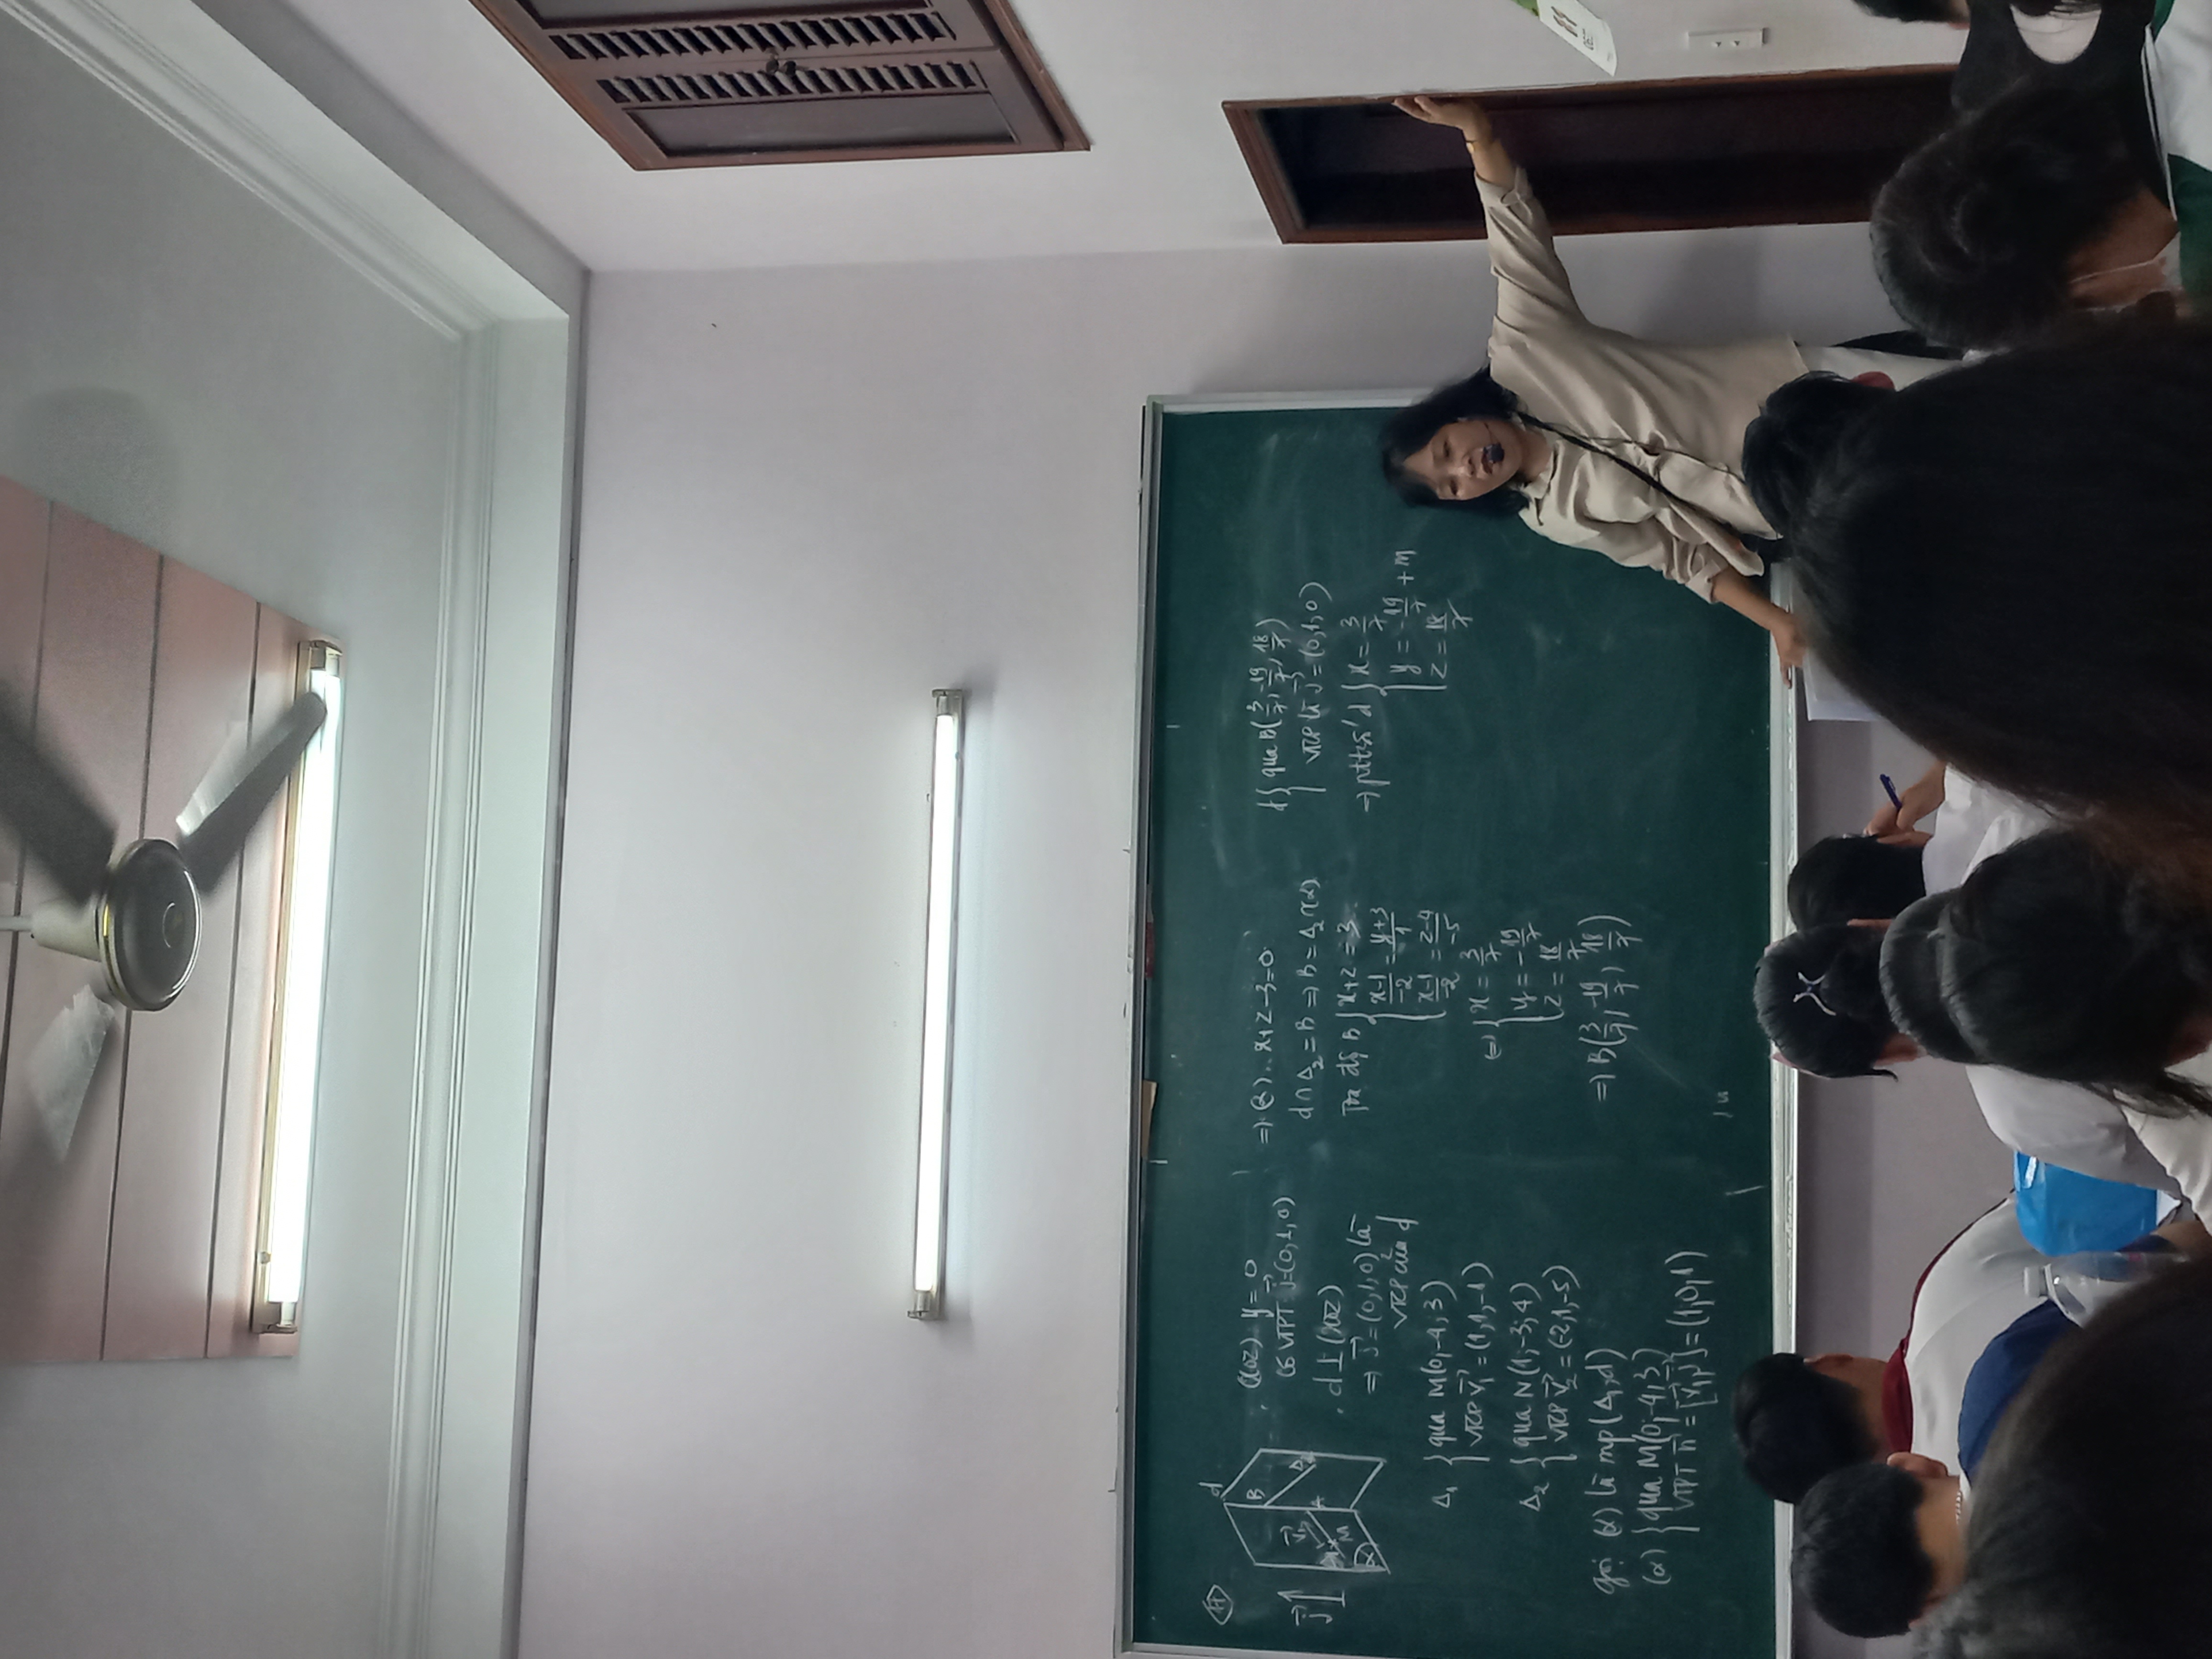 d
B
Δ₂
v₁
A
Δ₁
M
j
α
(xOz): y = 0
Có VTPT: j=(0,1,0)
. d⊥(xOz)
⇒ j=(0,1,0) là
VTCP của d
Δ₁ { qua M(0;-4;3)
VTCP v₁=(1,1,-1)
Δ₂ { qua N(1;-3;4)
VTCP v₂=(-2,1,-5)
gọi (α) là mp(Δ₁;d)
(α) { qua M(0;-4;3)
VTPT n=[v₁,j]=(1,0,1)
⇒ (α): x+z-3=0
d∩Δ₂=B ⇒ B=Δ₂∩(α)
Tọa độ B { x+z=3
(x-1)/-2=(y+3)/1
(x-1)/-2=(z-4)/-5
⇔ { x=3/7
y=-19/7
z=18/7
⇒ B(3/7,-19/7,18/7)
d { qua B(3/7,-19/7,18/7)
VTCP là j=(0,1,0)
⇒ ptts d { x=3/7
y=-19/7+m
z=18/7